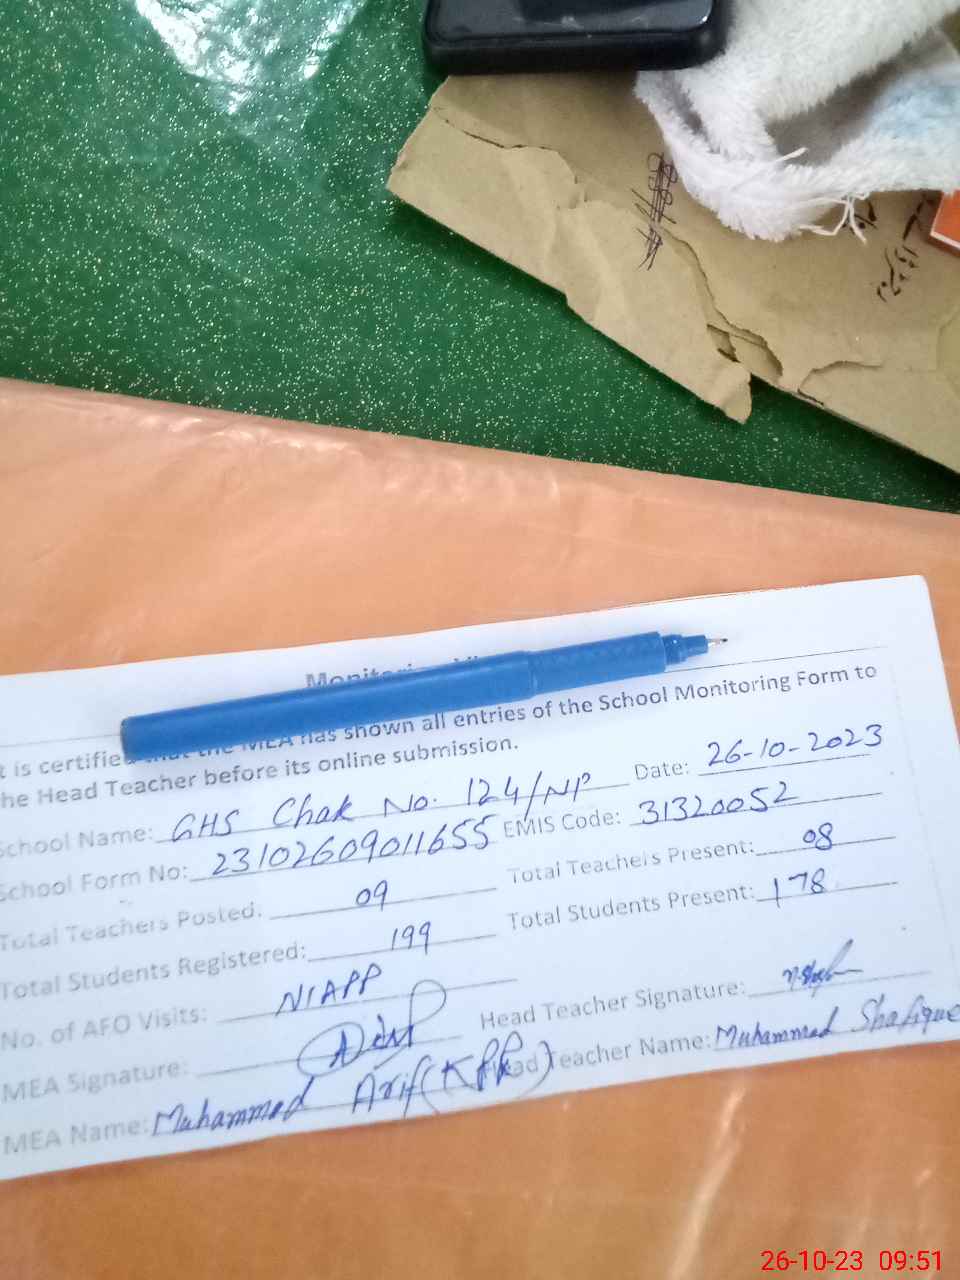 t is certified that the MEA has shown all entries of the School Monitoring Form to
he Head Teacher before its online submission.
School Name: GHS Chak No. 124/NP Date: 26-10-2023
School Form No: 23102609011655 EMIS Code: 31320052
Total Teachers Posted: 09 Total Teachers Present: 08
Total Students Registered: 199 Total Students Present: 178
No. of AFO Visits: NIAPP
MEA Signature: Head Teacher Signature:
MEA Name: Muhammad Arif Head Teacher Name: Muhammad Shafique
26-10-23 09:51